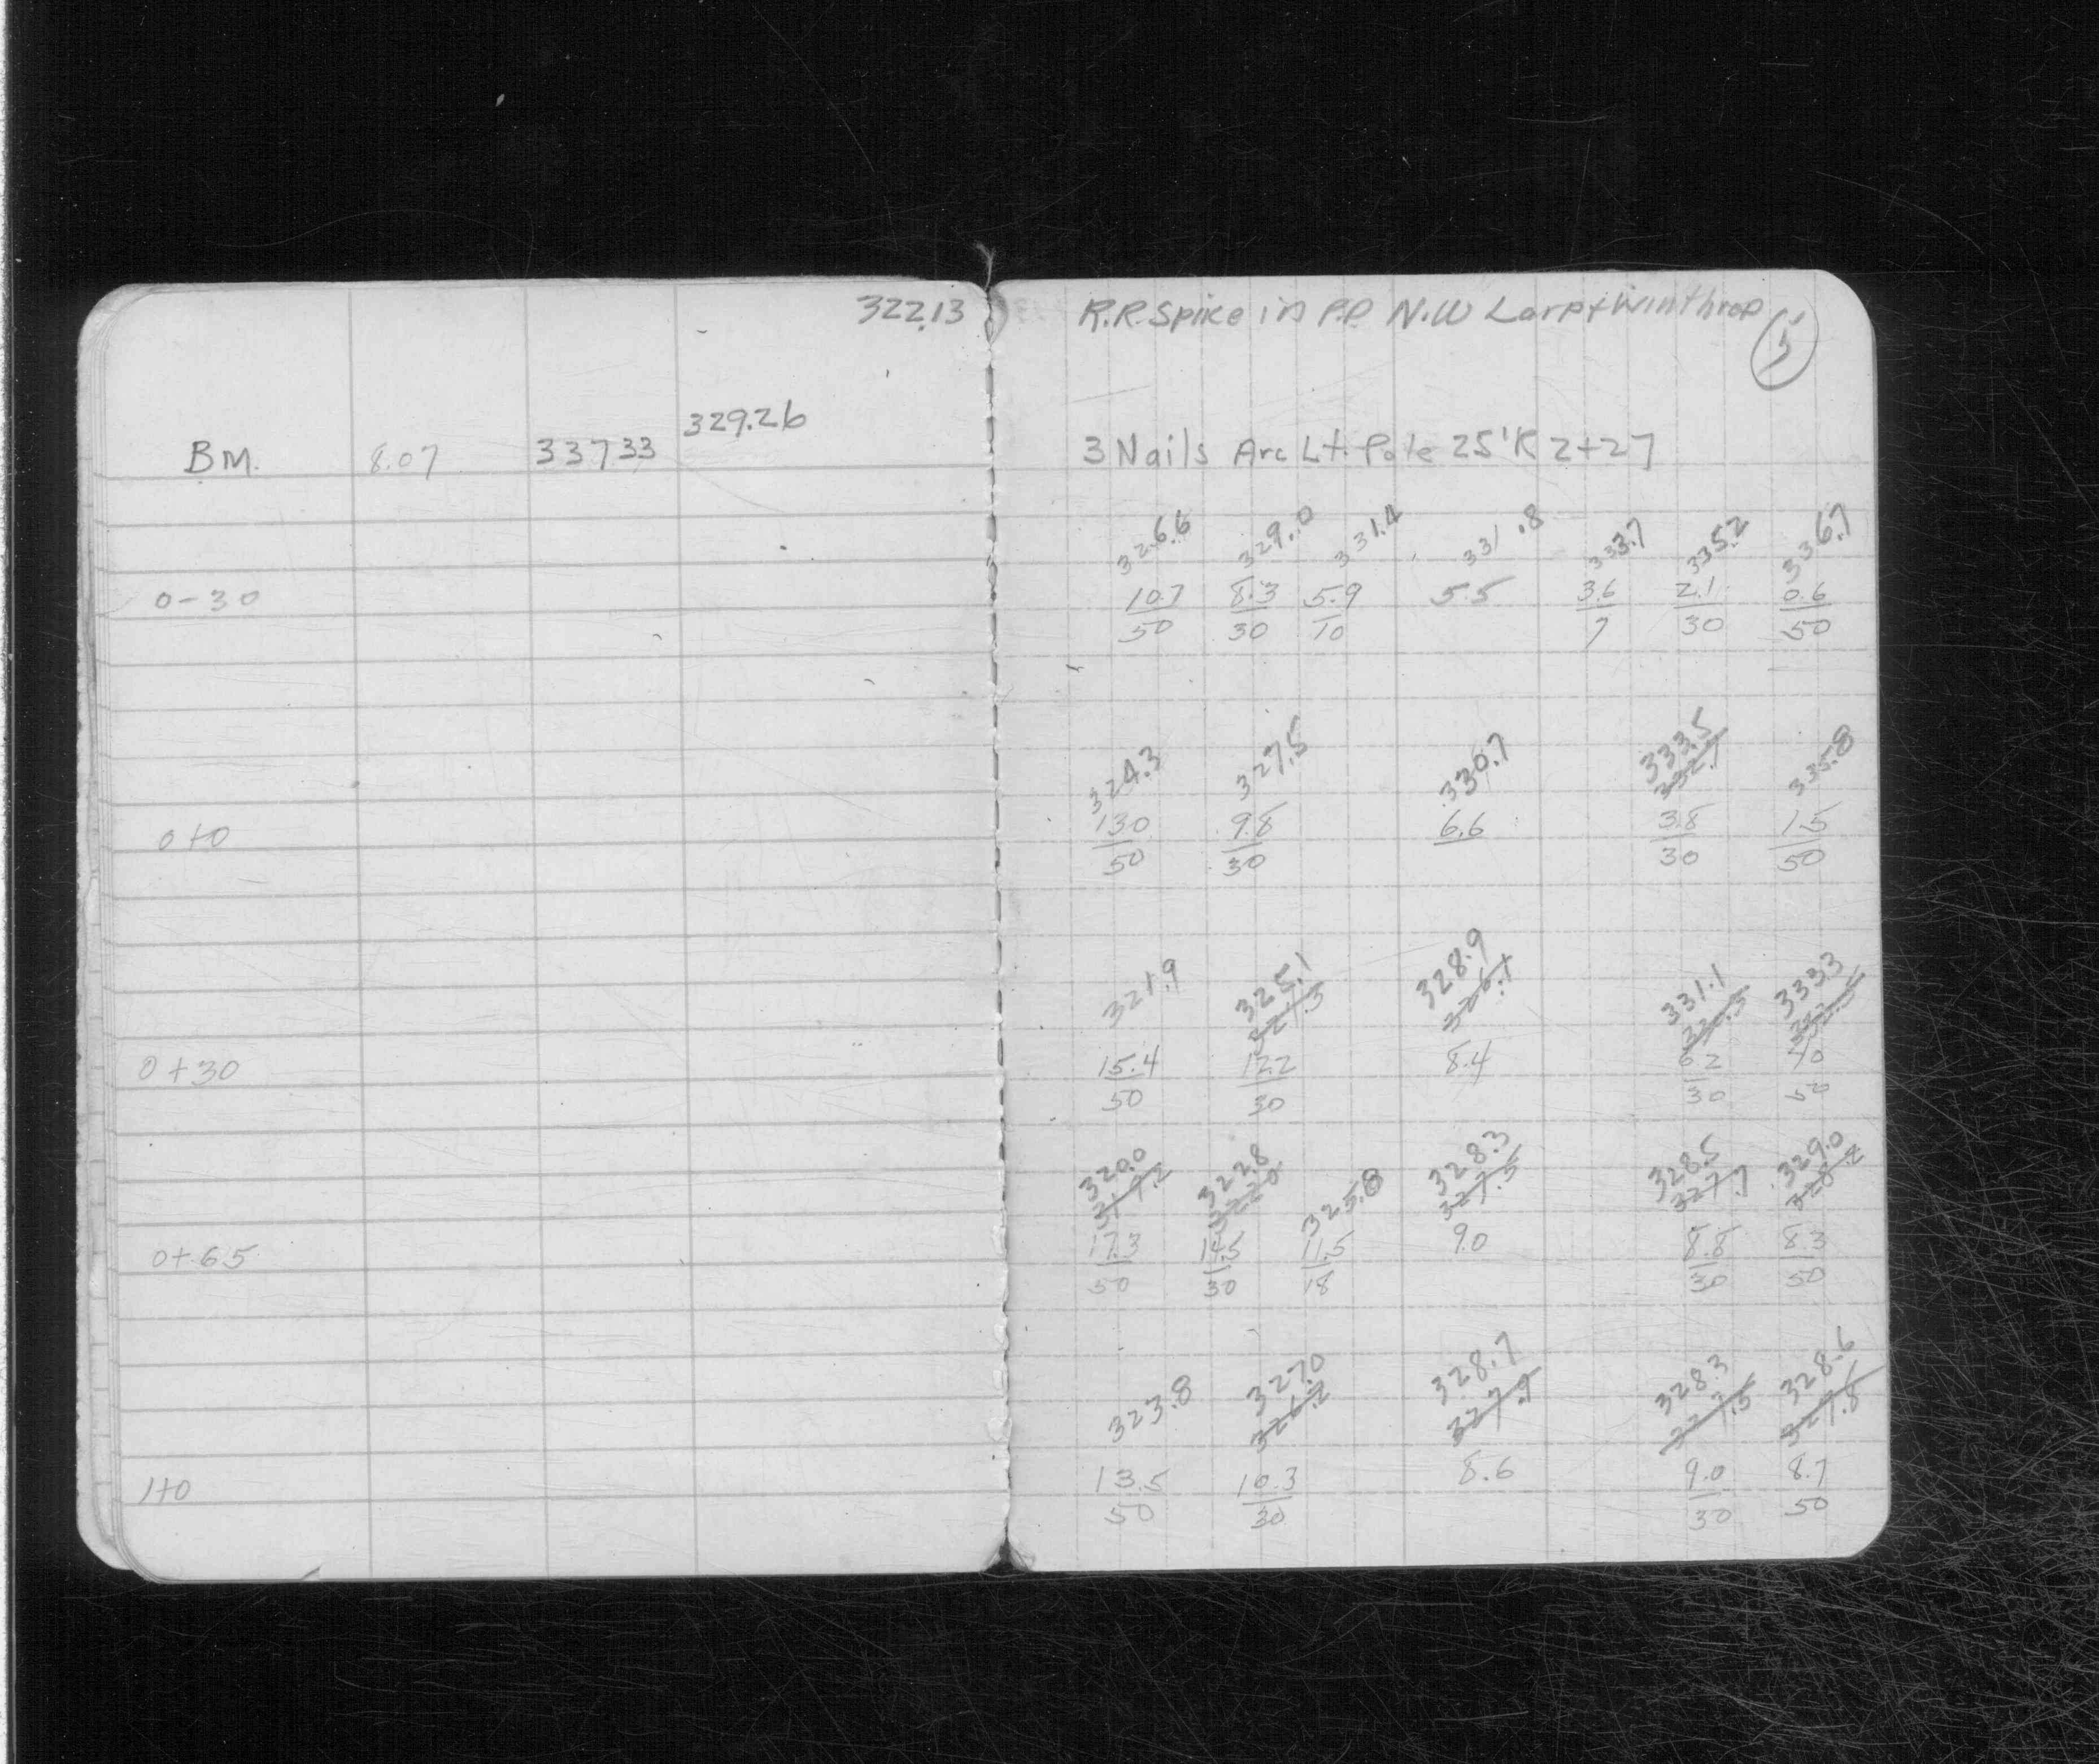 322.13 R.R. Spike in P.P. N.W Larp + Winthrop
5
329.26
BM. 8.07 337 33 3 Nails Arc Lt. Pole 25' R 2+27
326.6 329.0 331.4 331.8 333.7 335.2 336.7
0-30 10.7 8.3 5.9 5.5 3.6 2.1 0.6
50 30 10 7 30 50
324.3 327.5 330.7 333.5 335.8
332.7
0+0 13.0 9.8 6.6 3.8 1.5
50 30 30 50
321.9 325.1 328.9 331.1 333.3
0+30 15.4 12.2 8.4 6.2 4.0
50 30 30 50
320.0 322.8 325.8 328.3 328.5 329.0
319.2 322.0 327.5 327.7 328.2
0+65 17.3 14.5 11.5 9.0 8.8 8.3
50 30 18 30 50
323.8 327.0 328.7 328.3 328.6
326.2 327.9 327.5 327.8
1+0 13.5 10.3 8.6 9.0 8.7
50 30 30 50